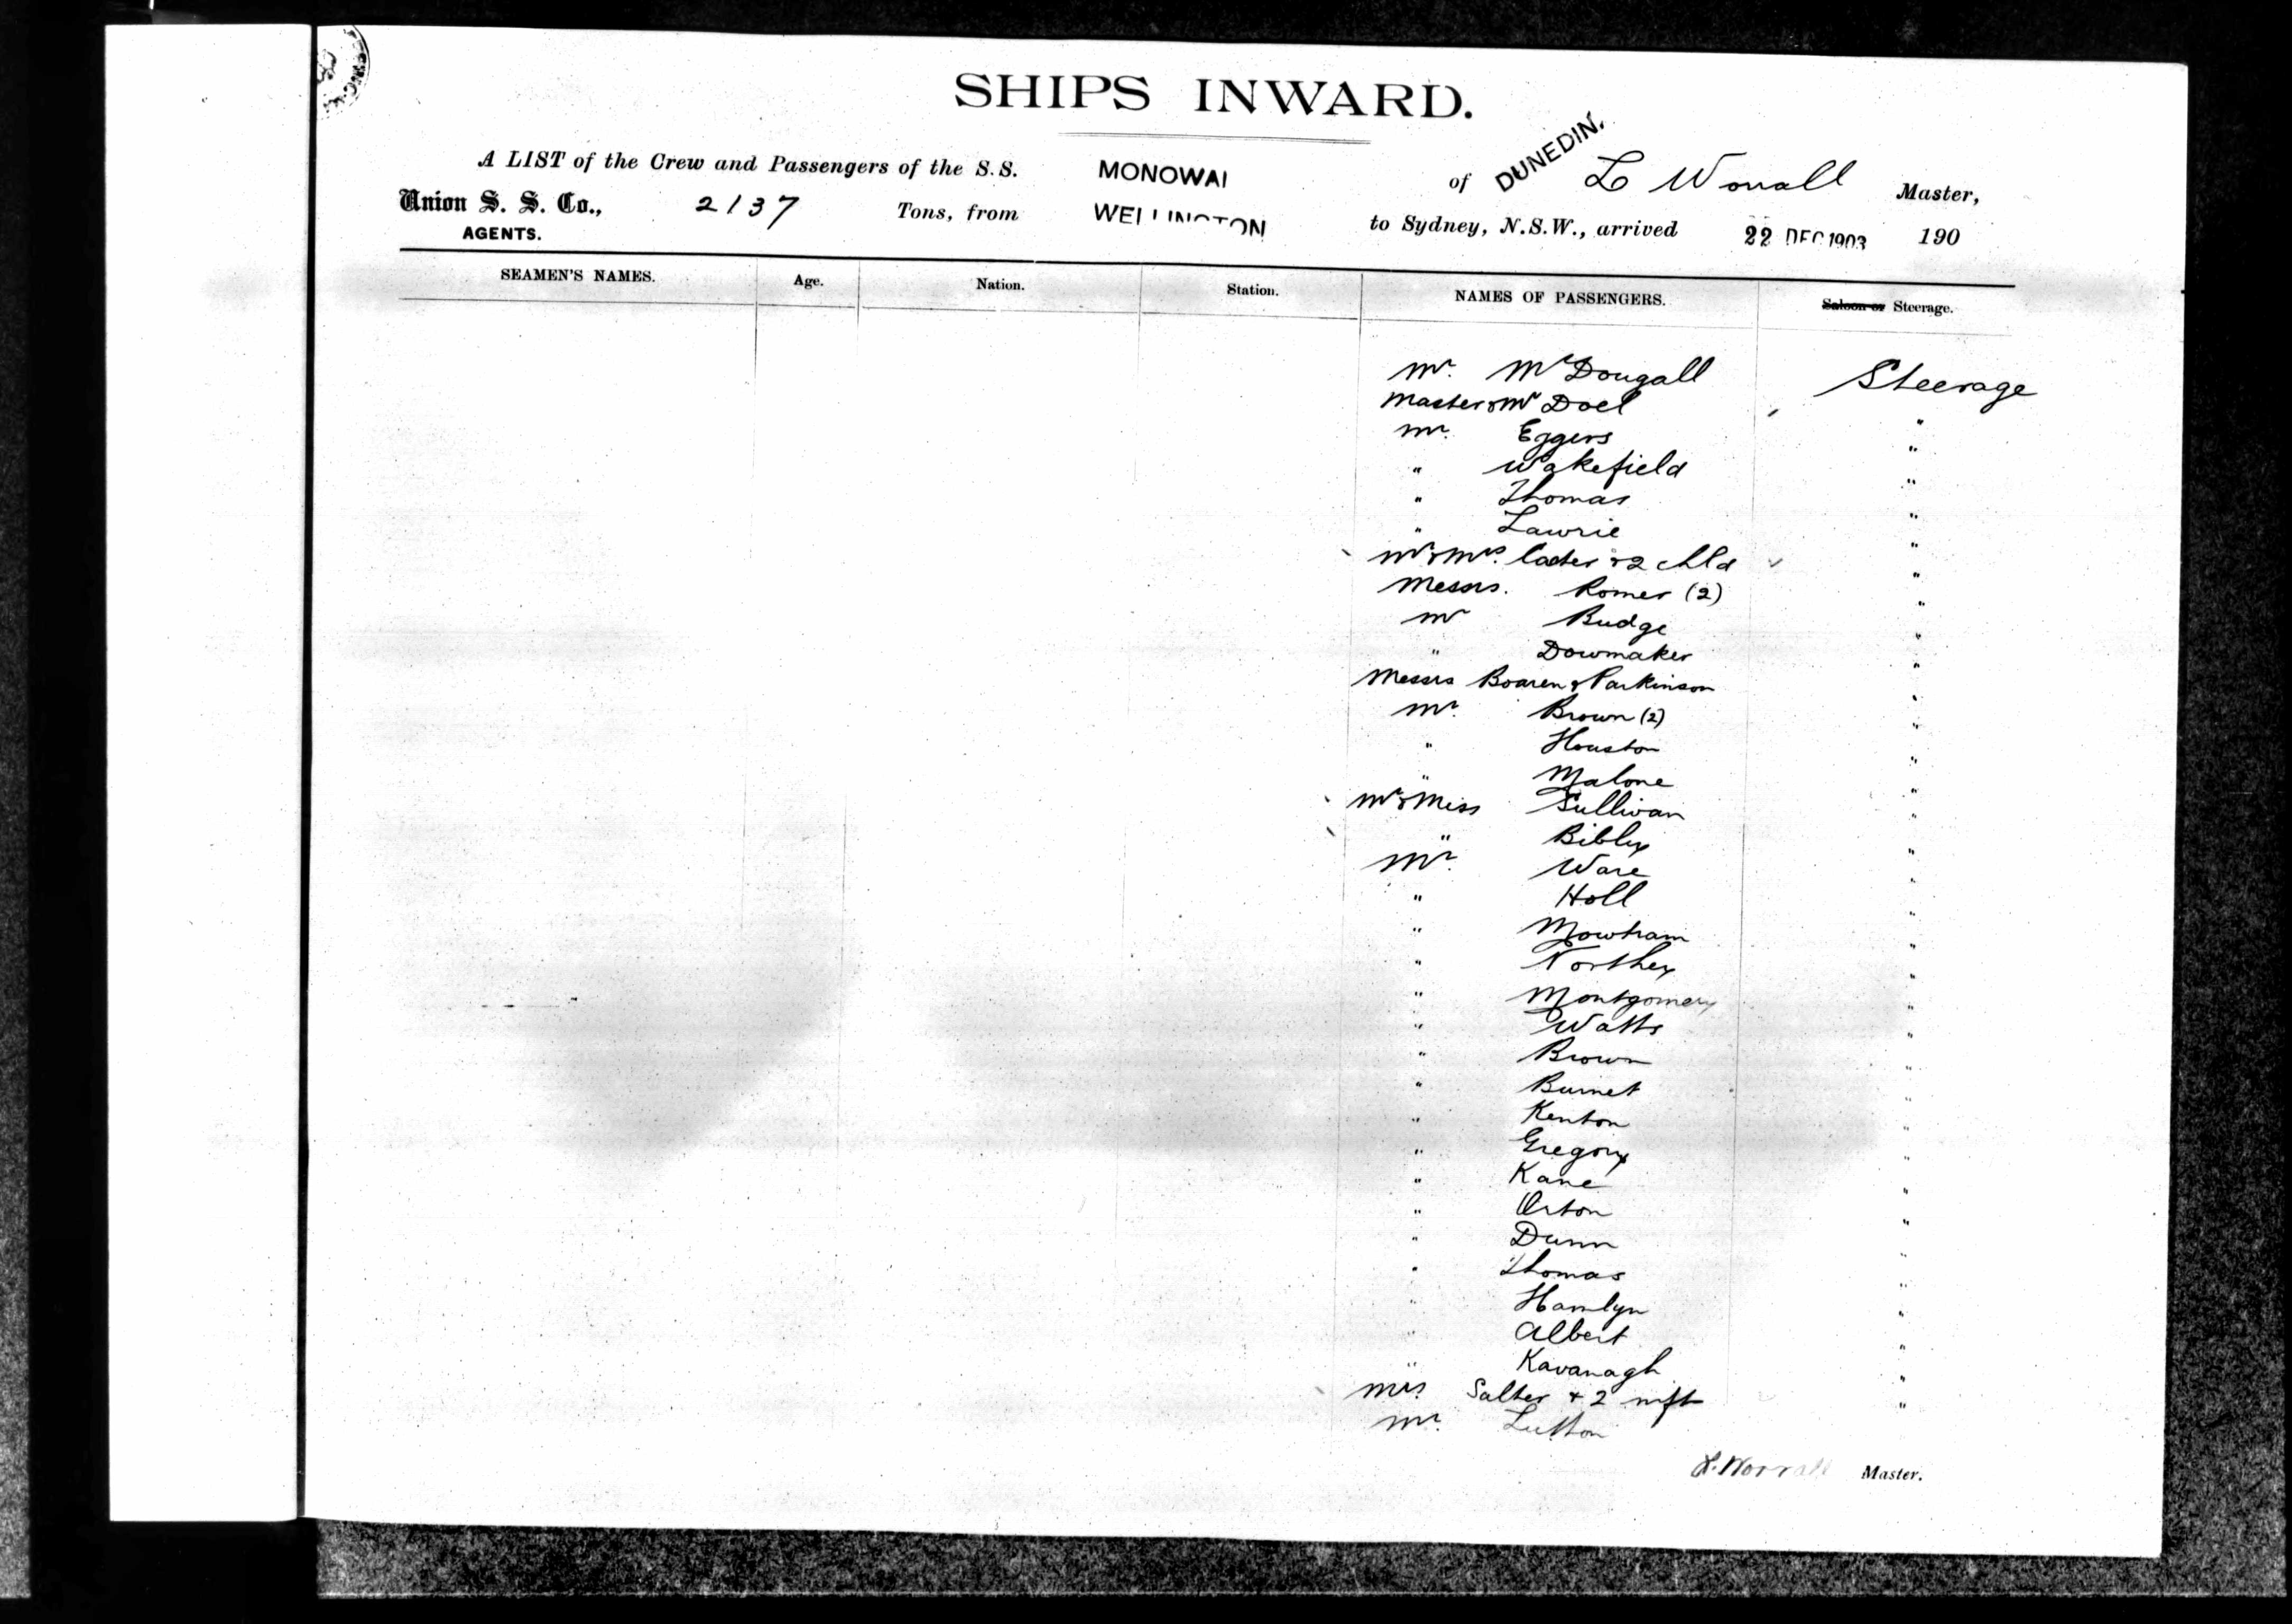 SHIPS INWARD.
A LIST of the Crew and Passengers of the S.S. MONOWAI of DUNEDIN. L Worrall Master,
Union S. S. Co., 2137 Tons, from WELLINGTON to Sydney, N.S.W., arrived 22 DEC 1903 190
AGENTS.
SEAMEN'S NAMES. Age. Nation. Station. NAMES OF PASSENGERS. Saloon or Steerage.
Mr. McDougall Steerage
Master & Mr Doel "
Mr. Eggers "
" Wakefield "
" Thomas "
" Lawrie "
Mr & Mrs. & 2 chld "
Messrs. Romer (2) "
Mr Budge "
" Dowmaker "
Messrs & Parkinson "
Mr. Brown (2) "
" Houston "
" Malone "
Mr & Miss Sullivan "
" Bibby "
Mr. Ware "
" Holl "
" Mowtram "
" Northey "
" Montgomery "
" Watts "
" Brown "
" Burnet "
" Kenton "
" Gregory "
" Kane "
" Orton "
" Dunn "
" Thomas "
" Hamlyn "
" Albert "
" Kavanagh "
Mrs. Salter & 2 inft "
Mr. Lutton
L. Worrall Master.